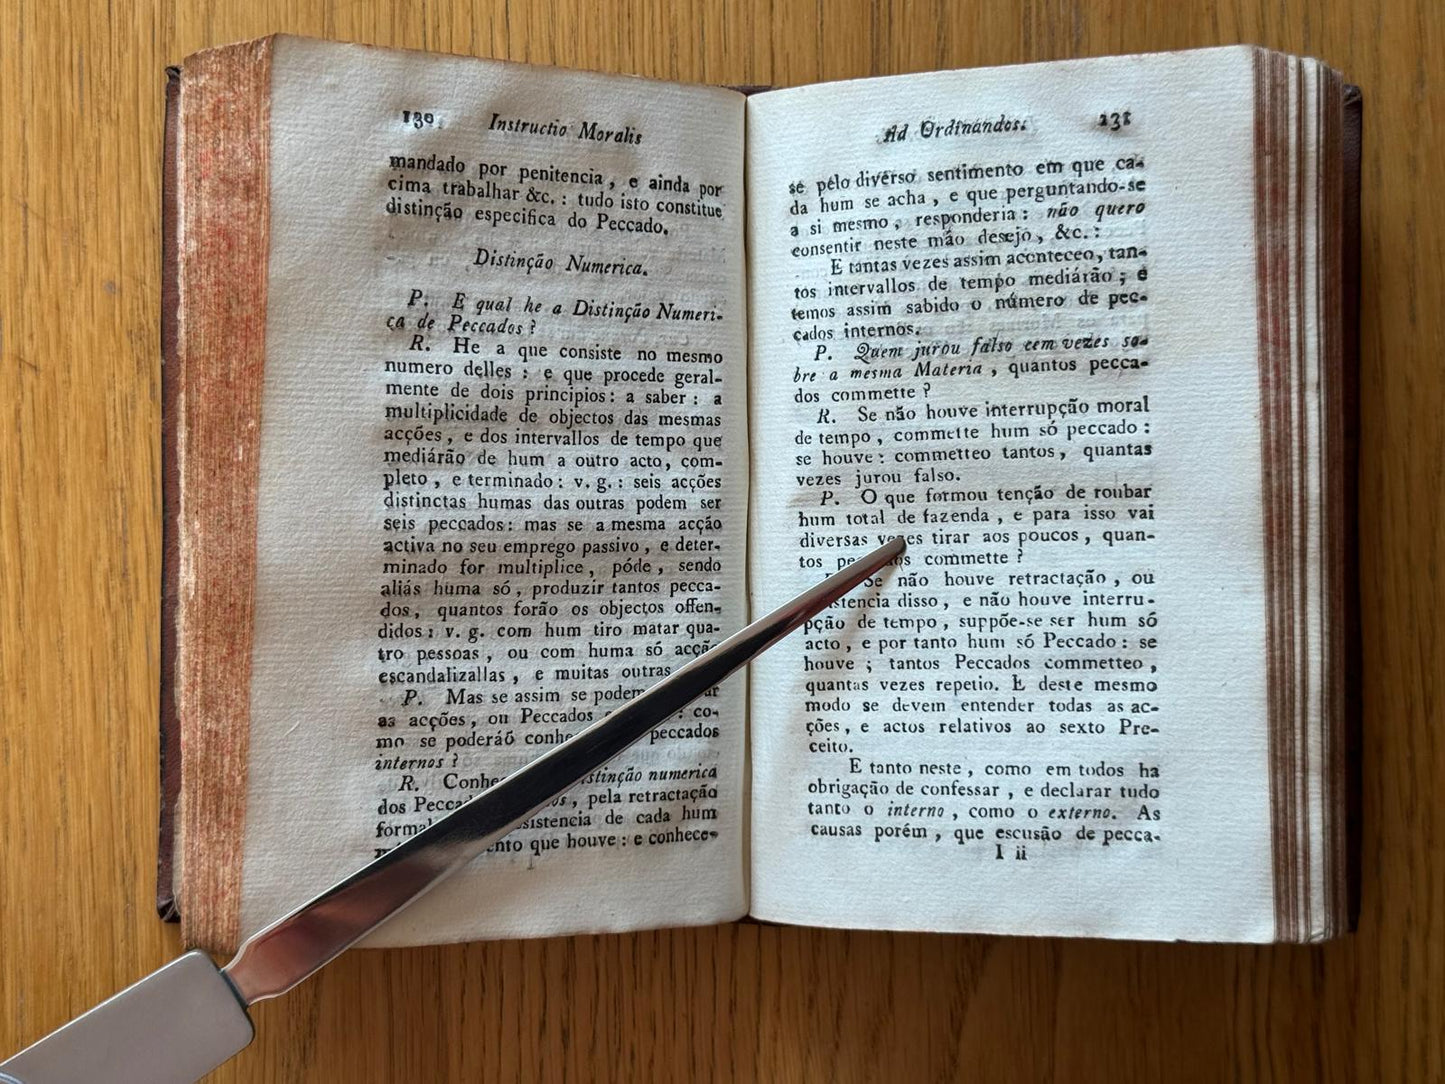 130. Instructio Moralis
mandado por penitencia, e ainda por
cima trabalhar &c.: tudo isto constitue
distinção especifica do Peccado.
Distinção Numerica.
P. E qual he a Distinção Numeri-
ca de Peccados?
R. He a que consiste no mesmo
numero delles: e que procede geral-
mente de dois principios: a saber: a
multiplicidade de objectos das mesmas
acções, e dos intervallos de tempo que
mediárão de hum a outro acto, com-
pleto, e terminado: v. g.: seis acções
distinctas humas das outras podem ser
seis peccados: mas se a mesma acção
activa no seu emprego passivo, e deter-
minado for multiplice, póde, sendo
aliás huma só, produzir tantos pecca-
dos, quantos forão os objectos offen-
didos: v. g. com hum tiro matar qua-
tro pessoas, ou com huma só acção
escandalizallas, e muitas outras
P. Mas se assim se podem ar
as acções, ou Peccados : co-
mo se poderáõ conhe peccados
internos?
R. Conhe stinção numerica
dos Pecca os, pela retractação
formal sistencia de cada hum
ento que houve: e conhece-
Ad Ordinandos. 131
se pélo diverso sentimento em que ca-
da hum se acha, e que perguntando-se
a si mesmo, responderia: não quero
consentir neste máo desejo, &c.:
E tantas vezes assim aconteceo, tan-
tos intervallos de tempo mediárão; e
temos assim sabido o número de pec-
cados internos.
P. Quem jurou falso cem vezes so-
bre a mesma Materia, quantos pecca-
dos commette?
R. Se não houve interrupção moral
de tempo, commette hum só peccado:
se houve: commetteo tantos, quantas
vezes jurou falso.
P. O que formou tenção de roubar
hum total de fazenda, e para isso vai
diversas vezes tirar aos poucos, quan-
tos pe os commette?
Se não houve retractação, ou
istencia disso, e não houve interru-
pção de tempo, suppõe-se ser hum só
acto, e por tanto hum só Peccado: se
houve; tantos Peccados commetteo,
quantas vezes repetio. E deste mesmo
modo se devem entender todas as ac-
ções, e actos relativos ao sexto Pre-
ceito.
E tanto neste, como em todos ha
obrigação de confessar, e declarar tudo
tanto o interno, como o externo. As
causas porém, que escusão de pecca-
I ii